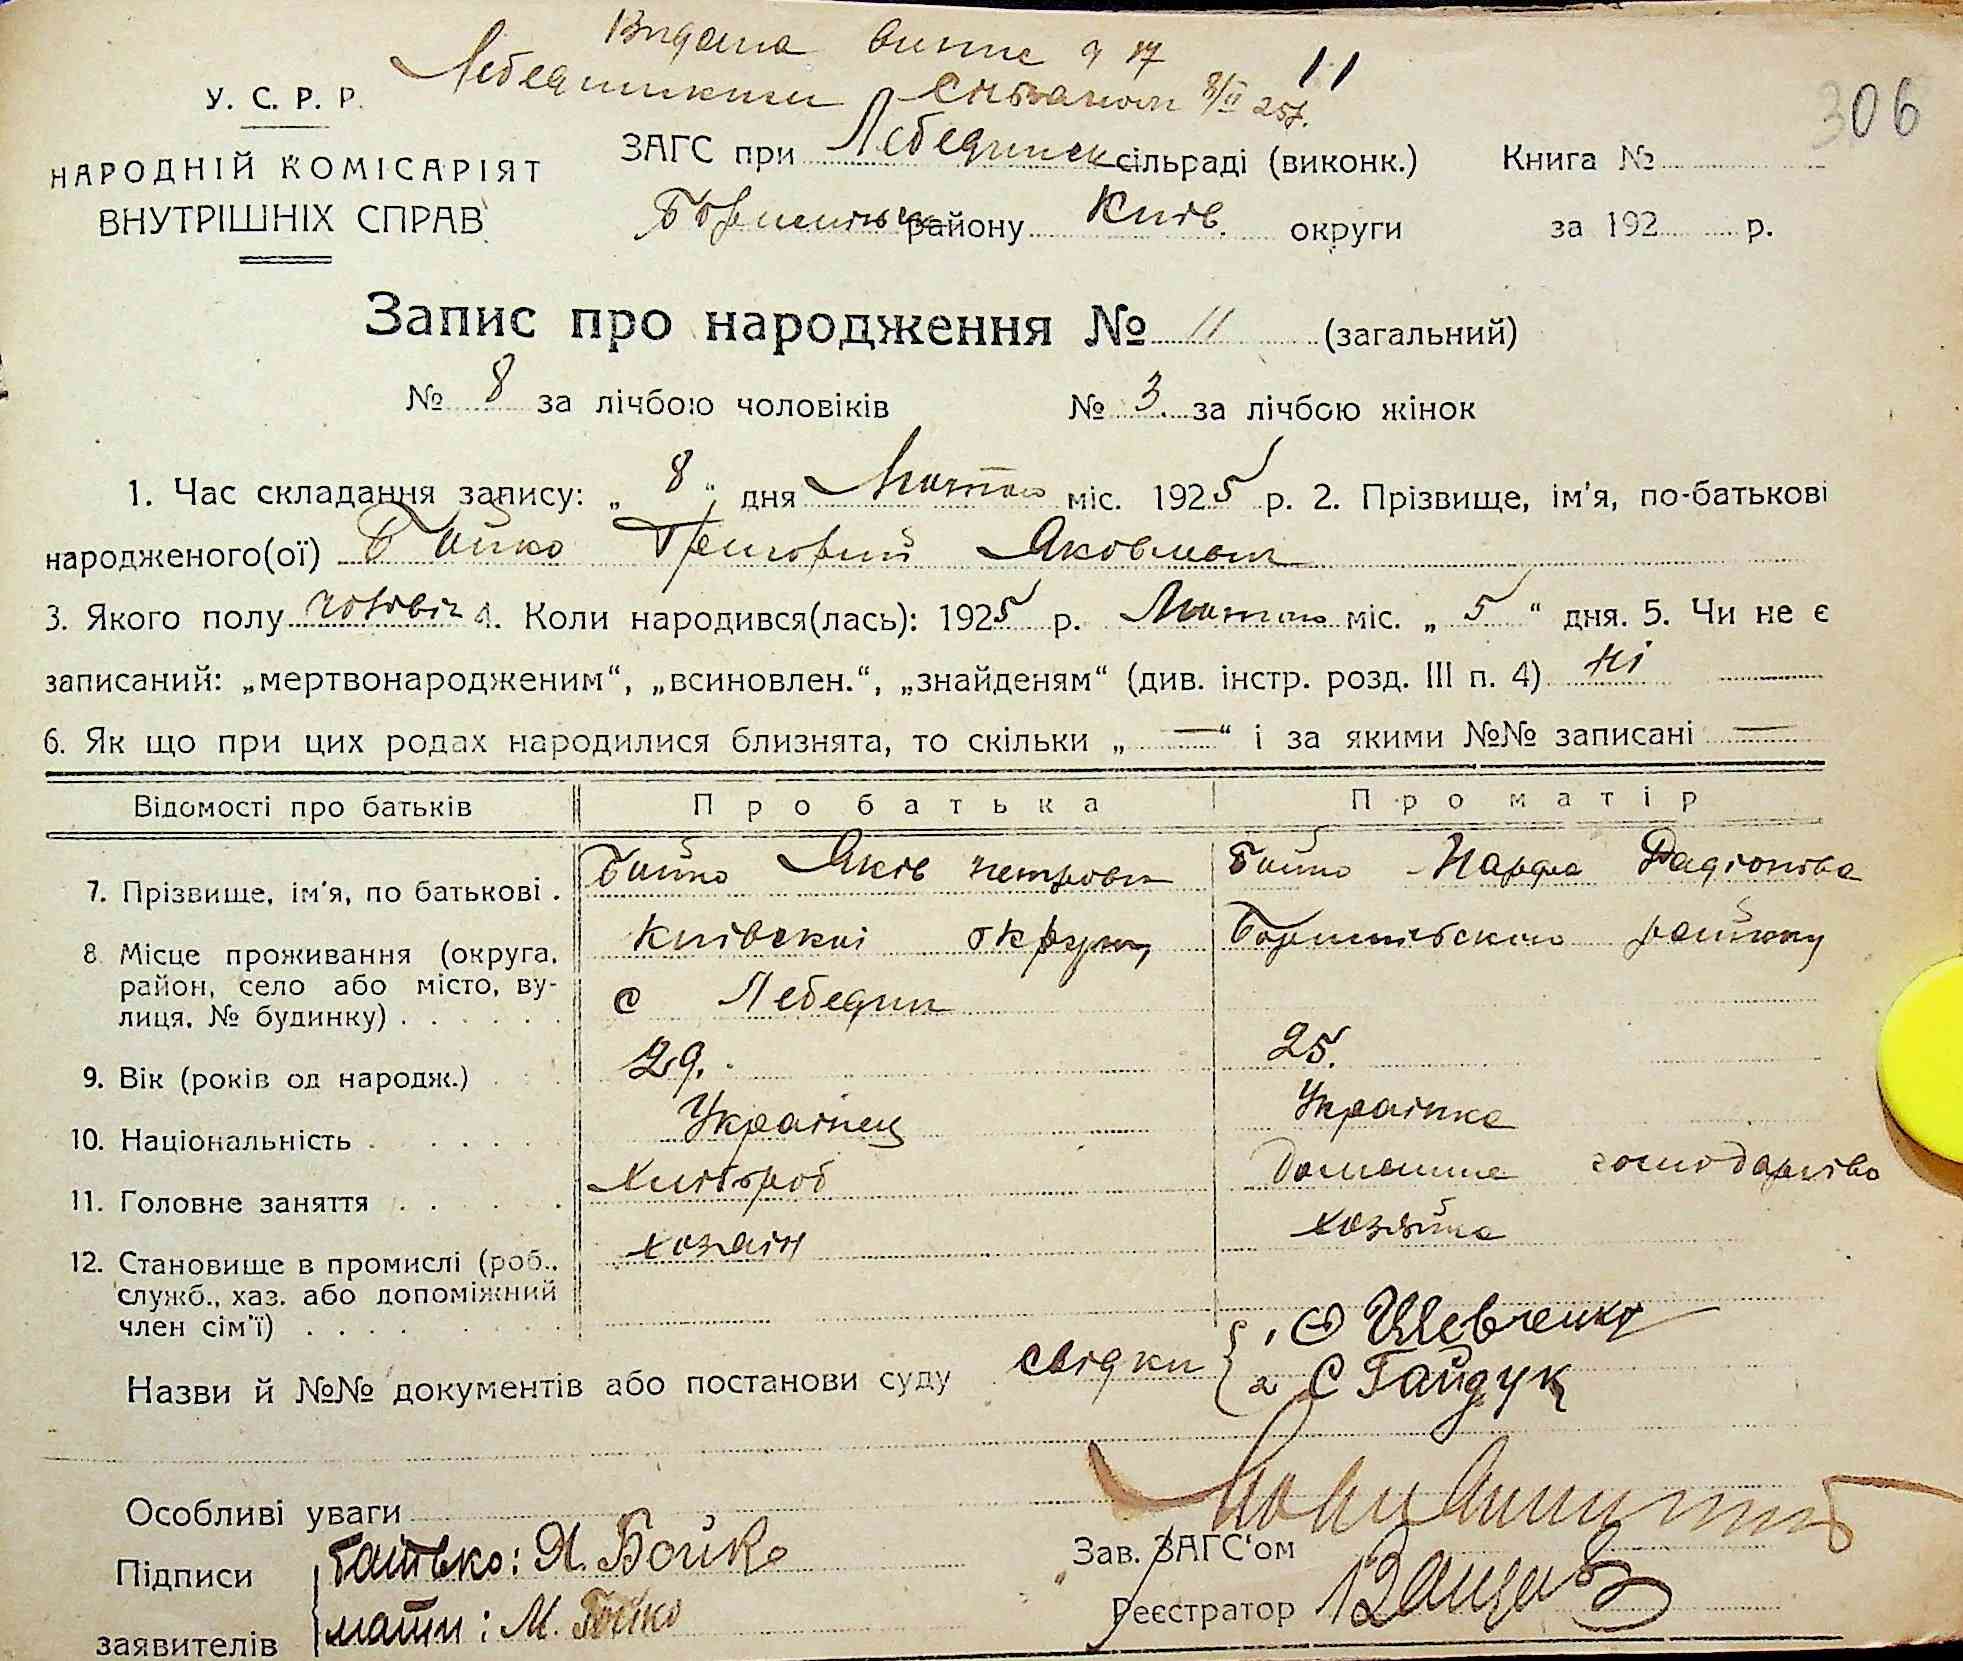 Видана
Лебединським сільвиконом 8/II 25 р.
306
У. С. Р. Р.
ЗАГС при Лебединськ сільраді (виконк.) Книга №
НАРОДНІЙ КОМІСАРІЯТ
ВНУТРІШНІХ СПРАВ
району Київ. округи за 192 р.
Запис про народження № 11 (загальний)
№ 8 за лічбою чоловіків № 3 за лічбою жінок
1. Час складання запису: „ 8 " дня Лютого міс. 1925 р. 2. Прізвище, ім'я, по-батькові
народженого(ої) Бойко Григорий Якович
3. Якого полу чоловіч 4. Коли народився(лась): 1925 р. Лютого міс. „ 5 " дня. 5. Чи не є
записаний: „мертвонародженим", „всиновлен.", „знайденям" (див. інстр. розд. III п. 4) ні
6. Як що при цих родах народилися близнята, то скільки „ — " і за якими №№ записані —
Відомості про батьків Про батька Про матір
7. Прізвище, ім'я, по батькові . Бойко Яків Петрович Бойко Марфа Радіонівна
8 Місце проживання (округа, район, село або місто, вулиця, № будинку) . Київскої округи, Бориспільского району
с Лебедин
9. Вік (років од народж.) 29. 25.
10. Національність Українец Українка
11. Головне заняття Хлібороб Домашне господарство
12. Становище в промислі (роб., хозяін хозяйка
служб., хаз. або допоміжний
член сім'ї)
Назви й №№ документів або постанови суду свідки 1 Ѳ Шевченко
2 С Гайдук
Особливі уваги
Підписи батько: Я. Бойко Зав. ЗАГС'ом
заявителів мати: М. Бойко Реєстратор